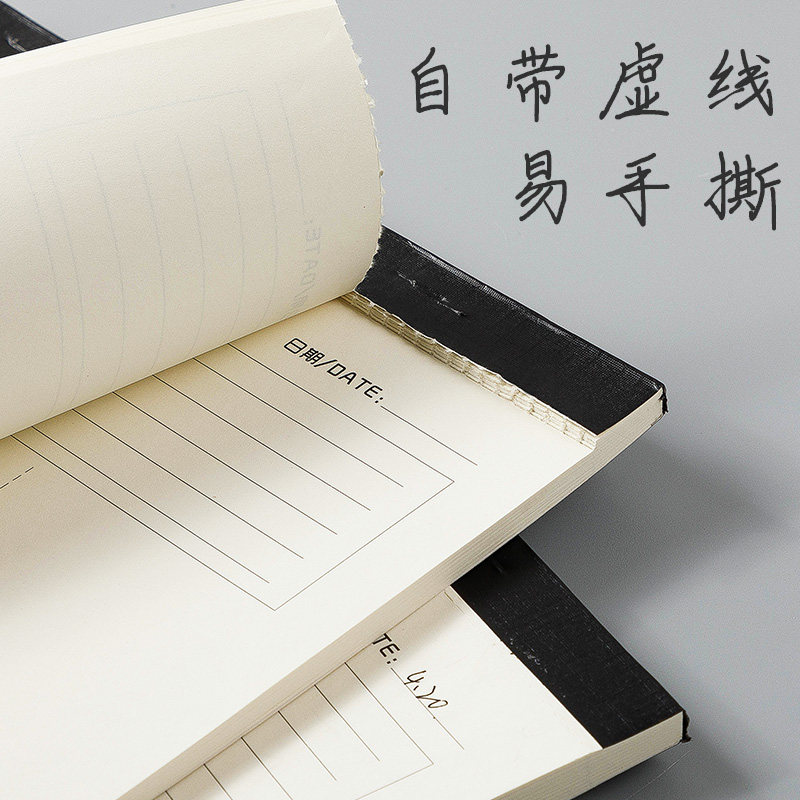 自带虚线
易手撕
日期/DATE:
TE: 4.20